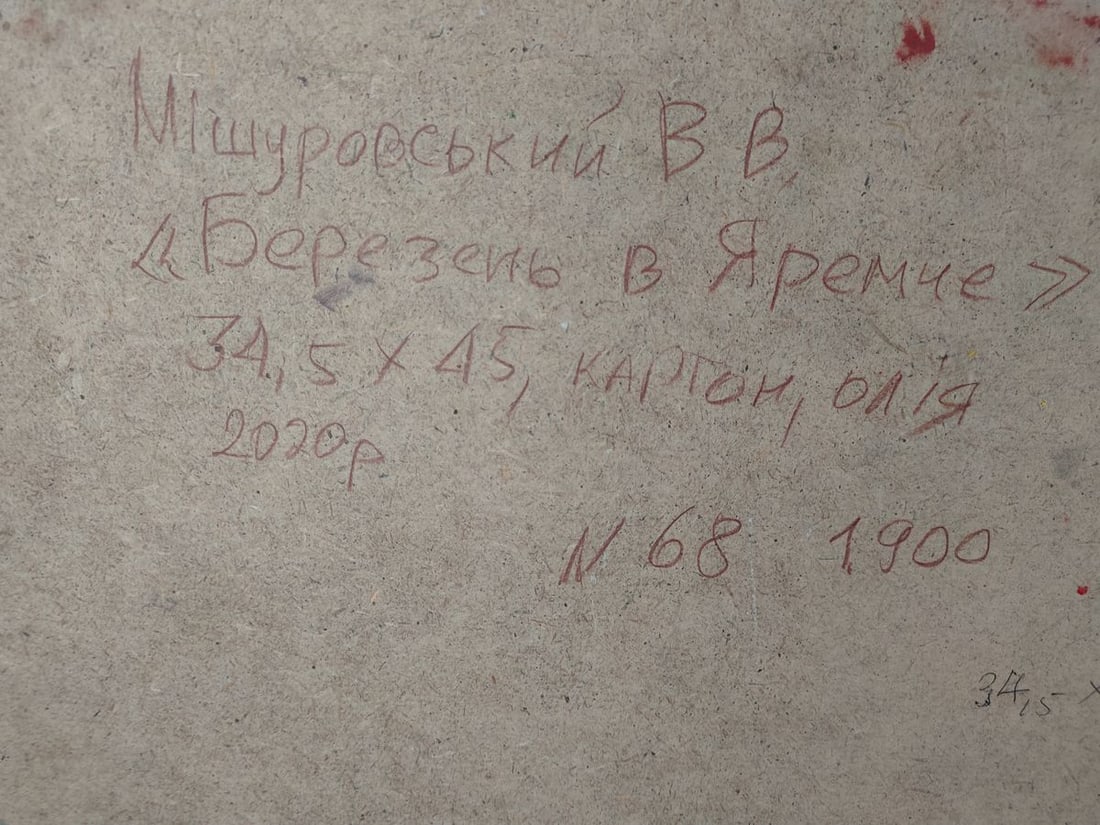 Мішуровський В.В.
«Березень в Яремче»
34,5 х 45, картон, олія
2020р
N 68 1900
34,5 х